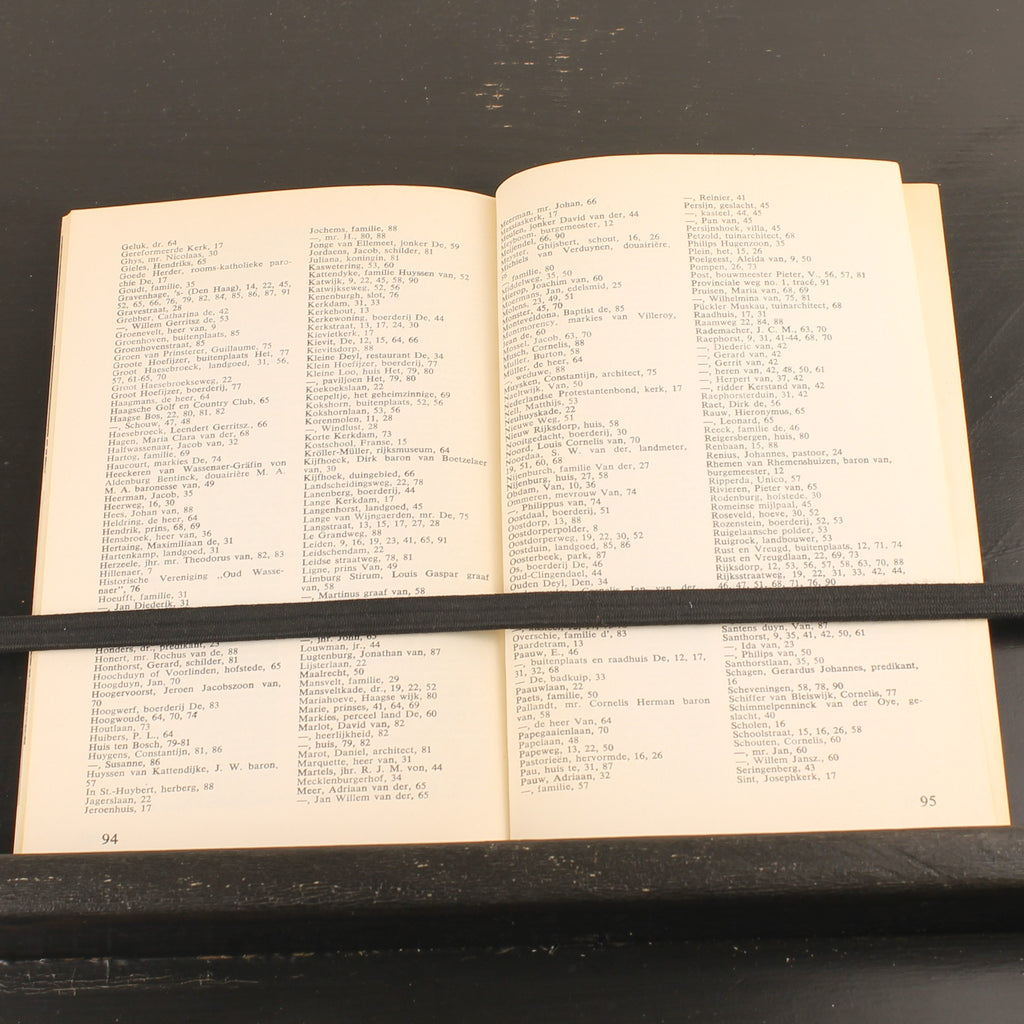 Geluk, dr. 64
Gereformeerde Kerk, 17
Ghys, mr. Nicolaas, 30
Gieles, Hendriks, 65
Goede Herder, rooms-katholieke paro-
chie De, 17
Goudt, familie, 35
Gravenhage, 's- (Den Haag), 14, 22, 45,
52, 65, 66, 76, 79, 82, 84, 85, 86, 87, 91
Gravestraat, 28
Grebber, Catharina de, 42
—, Willem Gerritsz de, 53
Groenevelt, heer van, 9
Groenhoven, buitenplaats, 85
Groenhovenstraat, 85
Groen van Prinsterer, Guillaume, 75
Groote Hoefijzer, buitenplaats Het, 77
Groot Haesebroeck, landgoed, 31, 56,
57, 61-65, 70
Groot Haesebroekseweg, 22
Groot Hoefijzer, boerderij, 77
Haagmans, de heer, 64
Haagsche Golf en Country Club, 65
Haagse Bos, 22, 80, 81, 82
—, Schouw, 47, 48
Haesebroeck, Leendert Gerritsz., 66
Hagen, Maria Clara van der, 68
Halfwassenaar, Jacob van, 32
Hartog, familie, 69
Haucourt, markies De, 74
Heeckeren van Wassenaer-Gräfin von
Aldenburg Bentinck, douairière M. A.
M. A. baronesse van, 49
Heerman, Jacob, 35
Heerweg, 16, 30
Hees, Johan van, 88
Heldring, de heer, 64
Hendrik, prins, 68, 69
Hensbroek, heer van, 36
Hertaing, Maximiliaan de, 31
Hartenkamp, landgoed, 31
Herzeele, jhr. mr. Theodorus van, 82, 83
Hillenaer, 7
Historische Vereniging „Oud Wasse-
naer”, 76
Hoeufft, familie, 31
—, Jan Diederik, 31
Honders, dr., predikant, 23
Honert, mr. Rochus van de, 88
Honthorst, Gerard, schilder, 81
Hoochduyn of Voorlinden, hofstede, 65
Hoogduyn, Jan, 70
Hoogervorst, Jeroen Jacobszoon van,
70
Hoogwerf, boerderij De, 83
Hoogwoude, 64, 70, 74
Houtlaan, 73
Huibers, P. L., 64
Huis ten Bosch, 79-81
Huygens, Constantijn, 81, 86
—, Susanne, 86
Huyssen van Kattendijke, J. W. baron,
57
In St.-Huybert, herberg, 88
Jagerslaan, 22
Jeroenhuis, 17
94
Jochems, familie, 88
—, mr. H., 80, 88
Jonge van Ellemeet, jonker De, 59
Jordaens, Jacob, schilder, 81
Juliana, koningin, 81
Kaswetering, 53, 60
Kattendyke, familie Huyssen van, 52
Katwijk, 9, 22, 45, 58, 90
Katwijkseweg, 52, 56
Kenenburgh, slot, 76
Kerkdam, 31
Kerkehout, 13
Kerkewoning, boerderij De, 44
Kerkstraat, 13, 17, 24, 30
Kievietkerk, 17
Kievit, De, 12, 15, 64, 66
Kievitsdorp, 88
Kleine Deyl, restaurant De, 34
Klein Hoefijzer, boerderij, 77
Kleine Loo, huis Het, 79, 80
—, paviljoen Het, 79, 80
Koekoekslaan, 22
Koepeltje, het geheimzinnige, 69
Kokshorn, buitenplaats, 52, 56
Kokshornlaan, 53, 56
Korenmolen, 11, 28
—, Windlust, 28
Korte Kerkdam, 73
Kostschool, Franse, 15
Kröller-Müller, rijksmuseum, 64
Kijfhoeck, Dirk baron van Boetzelaer
van, 30
Kijfhoek, duingebied, 66
Landscheidingsweg, 22, 78
Lanenberg, boerderij, 44
Lange Kerkdam, 17
Langenhorst, landgoed, 45
Lange van Wijngaerden, mr. De, 75
Langstraat, 13, 15, 17, 27, 28
Le Grandweg, 88
Leiden, 9, 16, 19, 23, 41, 65, 91
Leidschendam, 22
Leidse straatweg, 78, 81
Ligne, prins Van, 49
Limburg Stirum, Louis Gaspar graaf
van, 58
—, Martinus graaf van, 58
—, jhr. John, 63
Louwman, jr., 44
Lugtenburg, Jonathan van, 87
Lijsterlaan, 22
Maalrecht, 50
Mansvelt, familie, 29
Mansveltkade, dr., 19, 22, 52
Mariahoeve, Haagse wijk, 80
Marie, prinses, 41, 64, 69
Markies, perceel land De, 60
Marlot, David van, 82
—, heerlijkheid, 82
—, huis, 79, 82
Marot, Daniel, architect, 81
Marquette, heer van, 31
Martels, jhr. R. J. M. von, 44
Mecklenburgerhof, 34
Meer, Adriaan van der, 65
—, Jan Willem van der, 65
Meerman, mr. Johan, 66
Messiaskerk, 17
Meulen, jonker David van der, 44
Meyboom, burgemeester, 12
Meijendel, 66, 90
Meyster, Ghijsbert, schout, 16, 26
Michiels van Verduynen, douairière,
—, familie, 80
Middelweg, 35, 50
Mierop, Joachim van, 60
Moermans, Jan, edelsmid, 25
Molens, 23, 49, 51
Monster, 45, 70
Monteveldona, Baptist de, 85
Montmorency, markies van Villeroy,
Jean de, 60
Mossel, Jacob, 63, 70
Musch, Cornelis, 88
Müller, Burton, 58
Müller, de heer, 64
—, weduwe, 88
Muysken, Constantijn, architect, 75
Naeltwijk, Van, 50
Nederlandse Protestantenbond, kerk, 17
Nell, Matthijs, 53
Neuhuyskade, 22
Nieuwe Weg, 51
Nieuw Rijksdorp, huis, 58
Nooitgedacht, boerderij, 30
Noord, Louis Cornelis van, 70
Noordaa, S. W. van der, landmeter,
19, 51, 60, 68
Nijenburch, familie Van der, 27
Nijenburg, huis, 27, 58
Obdam, Van, 10, 36
Ommeren, mevrouw Van, 74
—, Philippus van, 74
Oostdaal, boerderij, 51
Oostdorp, 13, 88
Oostdorperpolder, 8
Oostdorperweg, 19, 22, 30, 52
Oostduin, landgoed, 85, 86
Oosterbeek, park, 87
Os, boerderij De, 46
Oud-Clingendael, 44
Ouden Deyl, Den, 34
Overschie, familie d', 83
Paardetram, 13
Paauw, E., 46
—, buitenplaats en raadhuis De, 12, 17,
31, 32, 68
— De, badkuip, 33
Paauwlaan, 22
Paets, familie, 50
Pallandt, mr. Cornelis Herman baron
van, 58
—, de heer Van, 64
Papegaaienlaan, 70
Papelaan, 48
Papeweg, 13, 22, 50
Pastorieën, hervormde, 16, 26
Pau, huis te, 31, 87
Pauw, Adriaan, 32
—, familie, 57
—, Reinier, 41
Persijn, geslacht, 45
—, kasteel, 44, 45
—, Pan van, 45
Persijnshoek, villa, 45
Petzold, tuinarchitect, 68
Philips Hugenzoon, 35
Plein, het, 15, 26
Poelgeest, Aleida van, 9, 50
Pompen, 26, 73
Post, bouwmeester Pieter, V., 56, 57, 81
Provinciale weg no. 1, tracé, 91
Pruisen, Maria van, 68, 69
—, Wilhelmina van, 75, 81
Pückler Muskau, tuinarchitect, 68
Raadhuis, 17, 31
Raamweg 22, 84, 88
Rademacher, J. C. M., 63, 70
Raephorst, 9, 31, 41-44, 68, 70
—, Diederic van, 42
—, Gerard van, 42
—, Gerrit van, 42
—, heren van, 42, 48, 50, 61
—, Herpert van, 37, 42
—, ridder Kerstand van, 42
Raephorsterduin, 31, 42
Raet, Dirk de, 56
Rauw, Hieronymus, 65
—, Leonard, 65
Reeck, familie de, 46
Reigersbergen, huis, 80
Renbaan, 15, 88
Renius, Johannes, pastoor, 24
Rhemen van Rhemenshuizen, baron van,
burgemeester, 12
Ripperda, Unico, 57
Rivieren, Pieter van, 65
Rodenburg, hofstede, 30
Romeinse mijlpaal, 45
Roseveld, hoeve, 30, 52
Rozenstein, boerderij, 52, 53
Ruigelaansche polder, 53
Ruigrock, landbouwer, 53
Rust en Vreugd, buitenplaats, 12, 71, 74
Rust en Vreugdlaan, 22, 69, 73
Rijksdorp, 12, 53, 56, 57, 58, 63, 70, 88
Rijksstraatweg, 19, 22, 31, 33, 42, 44,
46, 47, 51, 68, 71, 76, 90
Santens duyn, Van, 87
Santhorst, 9, 35, 41, 42, 50, 61
—, Ida van, 23
—, Philips van, 50
Santhorstlaan, 35, 50
Schagen, Gerardus Johannes, predikant,
16
Scheveningen, 58, 78, 90
Schiffer van Bleiswijk, Cornelis, 77
Schimmelpenninck van der Oye, ge-
slacht, 40
Scholen, 16
Schoolstraat, 15, 16, 26, 58
Schouten, Cornelis, 60
—, mr. Jan, 60
—, Willem Jansz., 60
Seringenberg, 43
Sint, Josephkerk, 17
95